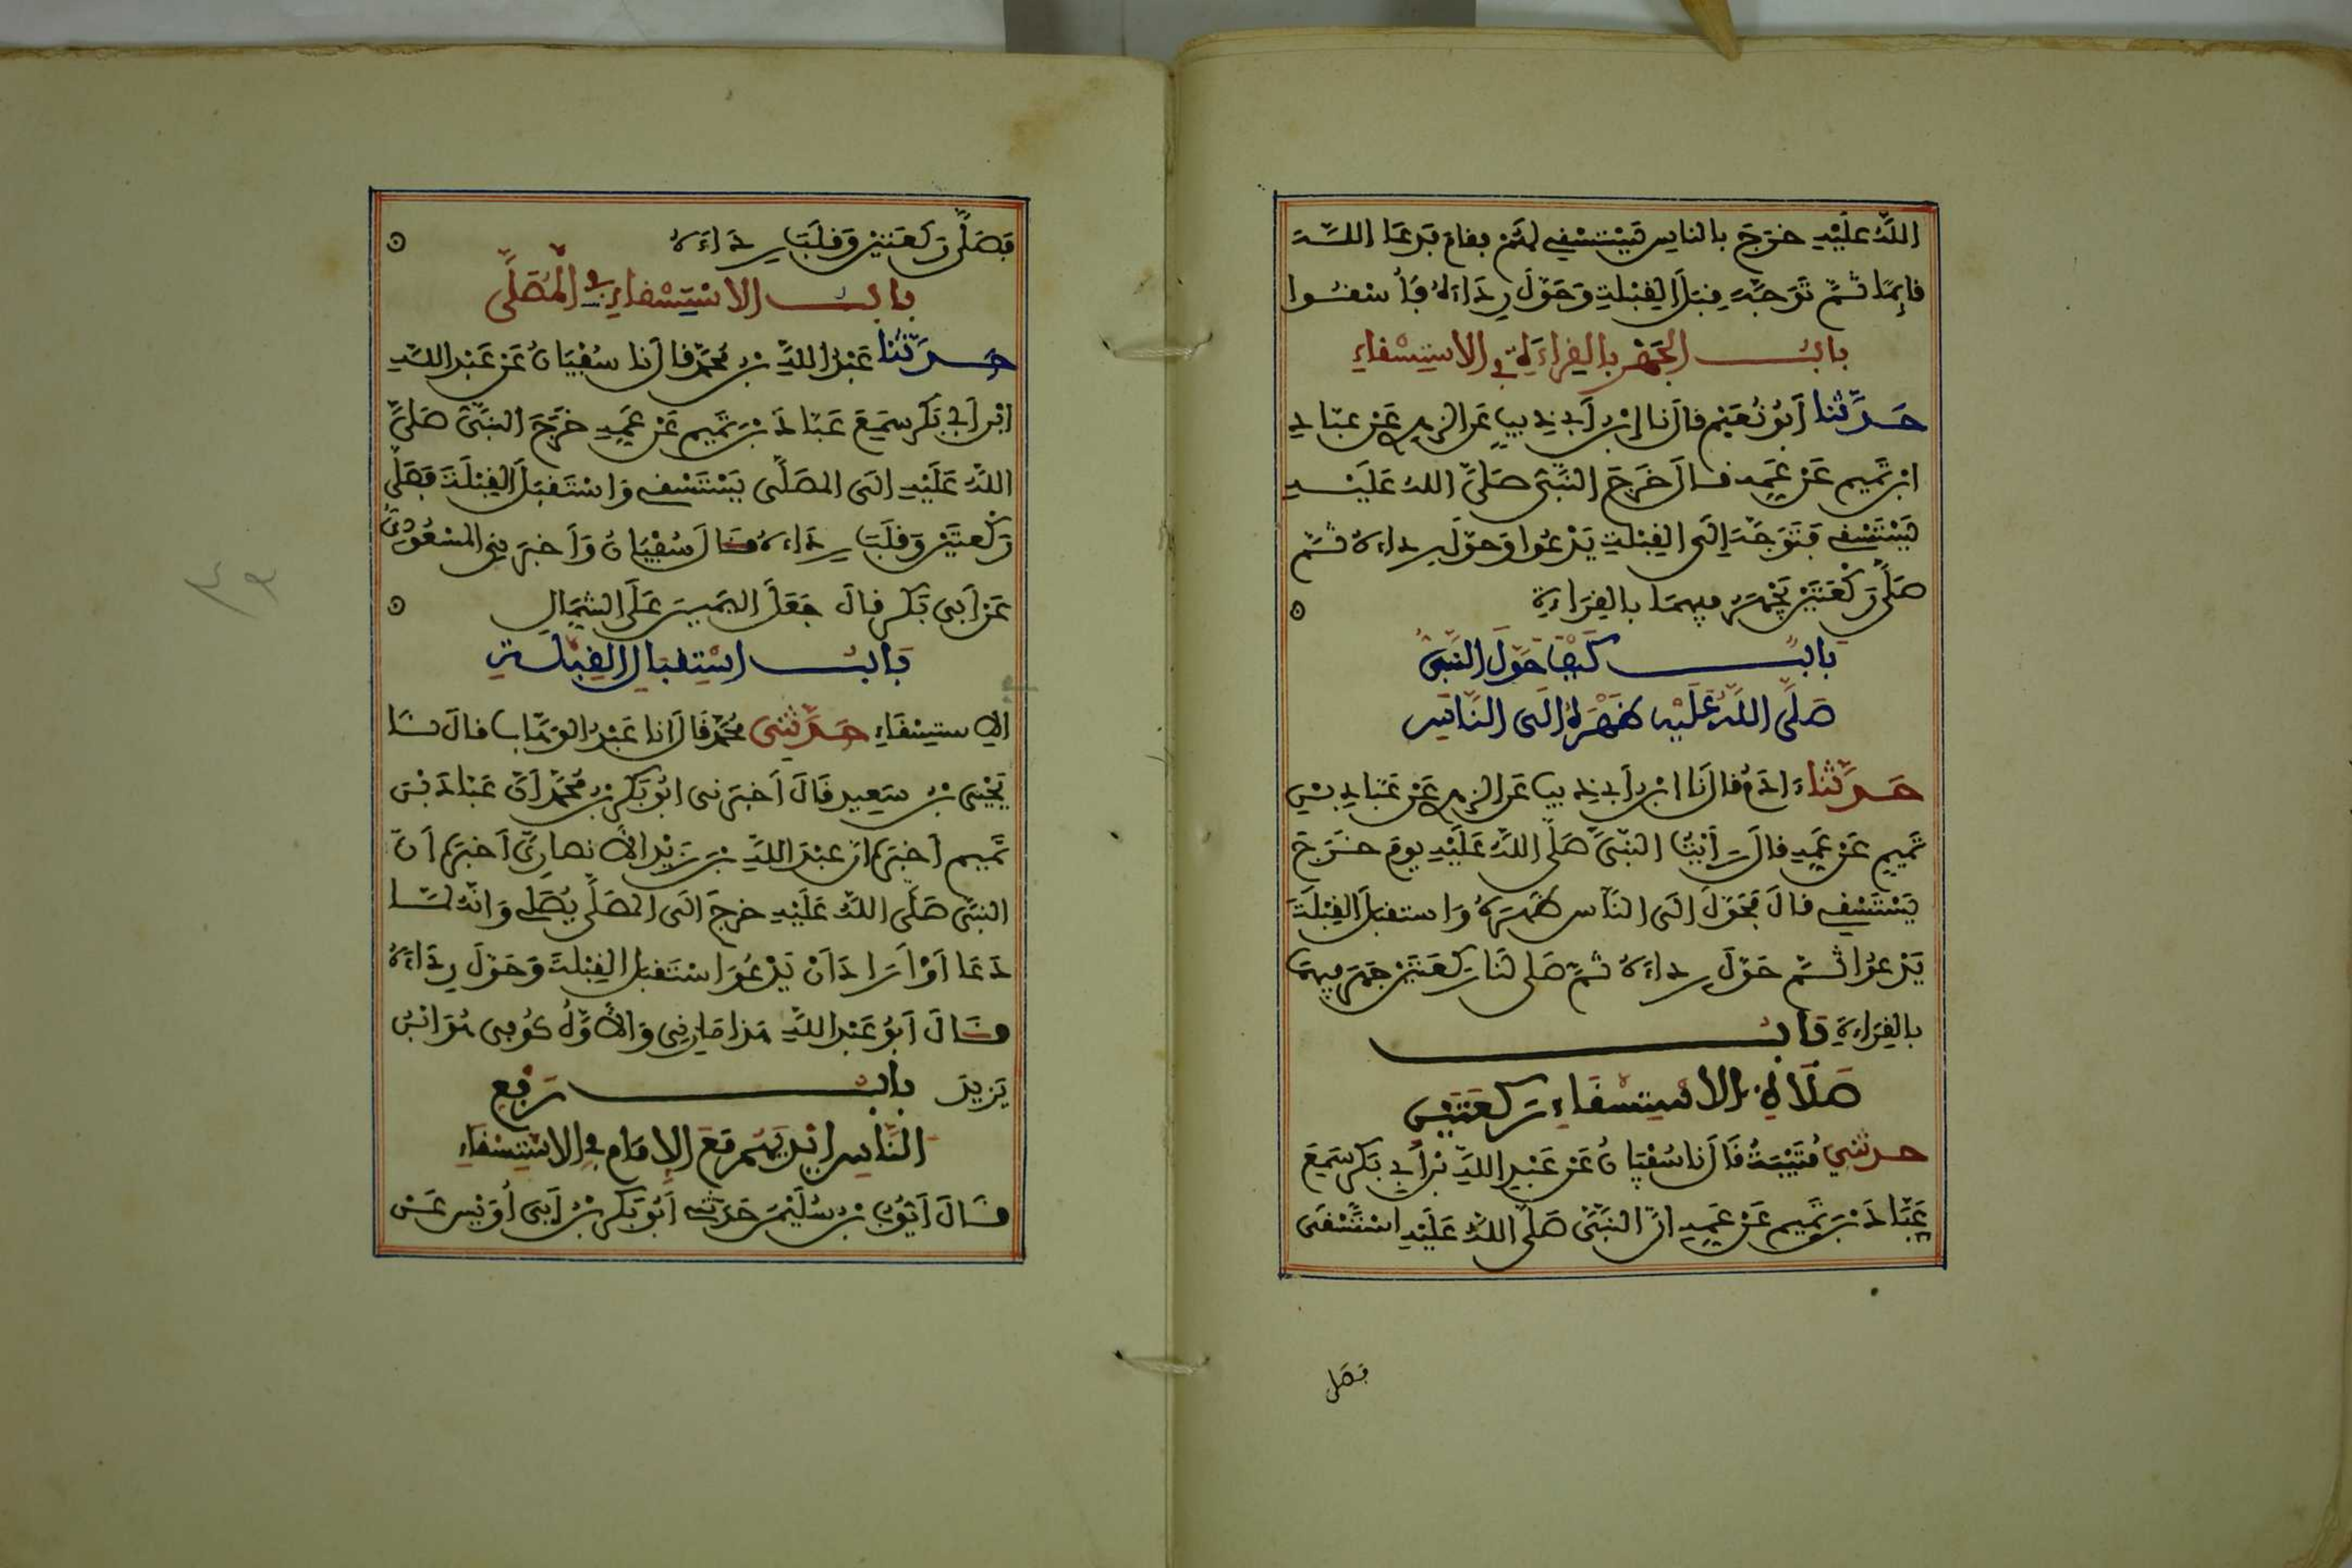 اللَّهُ عَلَيْهِ خَرَجَ بالناسِ يَسْتَسْقِي لهُمْ فقامَ فدَعَا اللَّهَ
قايِمًا ثُمَّ تَوَجَّهَ قِبَلَ القِبْلةِ وَحَوَّلَ رِدَاءَهُ فَأُسْقُوا
بابُ الجَهْرِ بالقِراءَةِ في الاستِسْقاءِ
حَدَّثنا أَبُو نُعَيْمٍ قالَ نا ابْنُ أَبِي ذِيبٍ عَنِ الزهرِي عَنْ عبّادِ
ابْنِ تَمِيمٍ عَنْ عَمِّهِ قالَ خَرَجَ النَّبِيُّ صَلَّى اللهُ عَلَيْهِ
يَسْتَسْقِي فَتَوَجَّهَ إِلَى القِبْلةِ يَدْعُوا وَحوّلَ رداءهُ ثُمَّ
صَلَّى رَكْعَتَيْنِ يَجْهَرُ فيهما بالقِرَاءَةِ
بابٌ كَيْفَ حَوَّلَ النَّبِيُّ
صَلَّى اللَّهُ عَلَيْهِ ظَهْرَهُ إلَى النَّاسِ
حَدَّثنا ءَادَمُ قالَ نَا ابْنُ أَبِي ذِيبٍ عَنِ الزهرِي عَنْ عَبّادِ بْنِ
تَمِيمٍ عَنْ عَمِّهِ قالَ رَأَيْتُ النَّبِيَّ صَلَّى اللَّهُ عَلَيْهِ يومَ خَرَجَ
يَسْتَسْقِي قالَ فَحَوَّلَ إلَى النَّاسِ ظَهْرَهُ وَاستقبَلَ القِبْلَةَ
يَدْعُوا ثُمَّ حَوَّلَ رداءَهُ ثُمَّ صَلى لَنَا رَكعَتَيْنِ جَهَرَ فيهِمَا
بالقِرَاءةِ بَابُ
صَلَاةِ الاسْتِسْقَاءِ رَكعَتَيْنِ
حدثني قُتَيْبَةُ قَالَ نا سُفْيَانُ عَنْ عَبْدِ اللَّهِ بْنِ أَبِي بَكرٍ سَمِعَ
عَبَّادَ بْنَ تَمِيمٍ عَنْ عَمِّهِ انَّ النَّبِيَّ صَلَّى اللَّهُ عَلَيْهِ اسْتَسْقَى
فصَلى
فَصَلَّى رَكعَتَيْنِ وَقَلَبَ رِدَاءَهُ
بابُ الاسْتِسْقاءِ في الْمُصَلَّى
حَدَّثَنا عَبْدُ اللَّهِ بْنُ مُحَمَّدٍ قالَ نا سُفْيَانُ عَنْ عَبْدِ اللَّهِ
ابْنِ أَبِي بَكرٍ سَمِعَ عَبّادَ بْنَ تَمِيمٍ عَنْ عَمِّهِ خَرَجَ النَّبِيُّ صَلَّى
اللَّهُ عَلَيْهِ الَى المصَلَّى يَسْتَسْقِي وَاسْتَقبَلَ القِبْلَةَ فَصَلَّى
رَكْعتَيْنِ وَقَلَبَ رِدَاءهُ قَالَ سُفْيَانُ وَأَخبَرَنِي المَسْعُودِيُّ
عَنْ أَبِي بَكرٍ قالَ جَعَلَ اليَمِينَ عَلَى الشمَالِ
بَابُ اسْتِقْبَالِ القِبْلَةِ
في الاستِسْقَاءِ حَدَّثَنِي مُحَمَّدٌ قَالَ انا عَبْدُ الوَهَّابِ قالَ نَا
يَحْيَى بْنُ سَعِيدٍ قَالَ أَخبَرَني ابُو بَكرِ بْنُ مُحَمَّدٍ أَنَّ عَبّادَ بْنَ
تَمِيمٍ أخبَرَهُ انّ عَبْدَ اللَّهِ بْنَ زَيْدٍ الأَنصارِيَّ أَخبَرَهُ أَنَّ
النَّبِيَّ صَلَّى اللَّهُ عَلَيْهِ خرجَ الَى المصَلَّى يُصَلِّي وَانّهُ لمّا
دَعَا أَوْ أَرَادَ أَنْ يَدْعُوَ اسْتَقبَلَ القِبْلَةَ وَحَوَّلَ رِدَاءَهُ
قَالَ أَبُو عَبْدِ اللَّهِ هَذا مَازِنِي وَالأَوَّلُ كُوفِي هُوَ ابْنُ
يَزِيدَ بابُ رَفْعِ
النَّاسِ أيْدِيَهُمْ مَعَ الإِمَامِ فِي الاسْتِسْقَاءِ
قَالَ أَيُّوبُ بْنُ سُلَيْمٰنَ حَدثَنِي أَبُو بَكرِ بْنُ أَبِي أُوَيْسٍ عَنْ